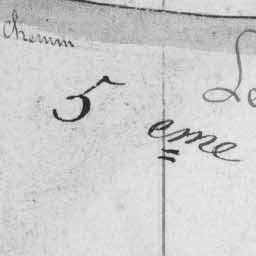 chemin
Le
5 eme